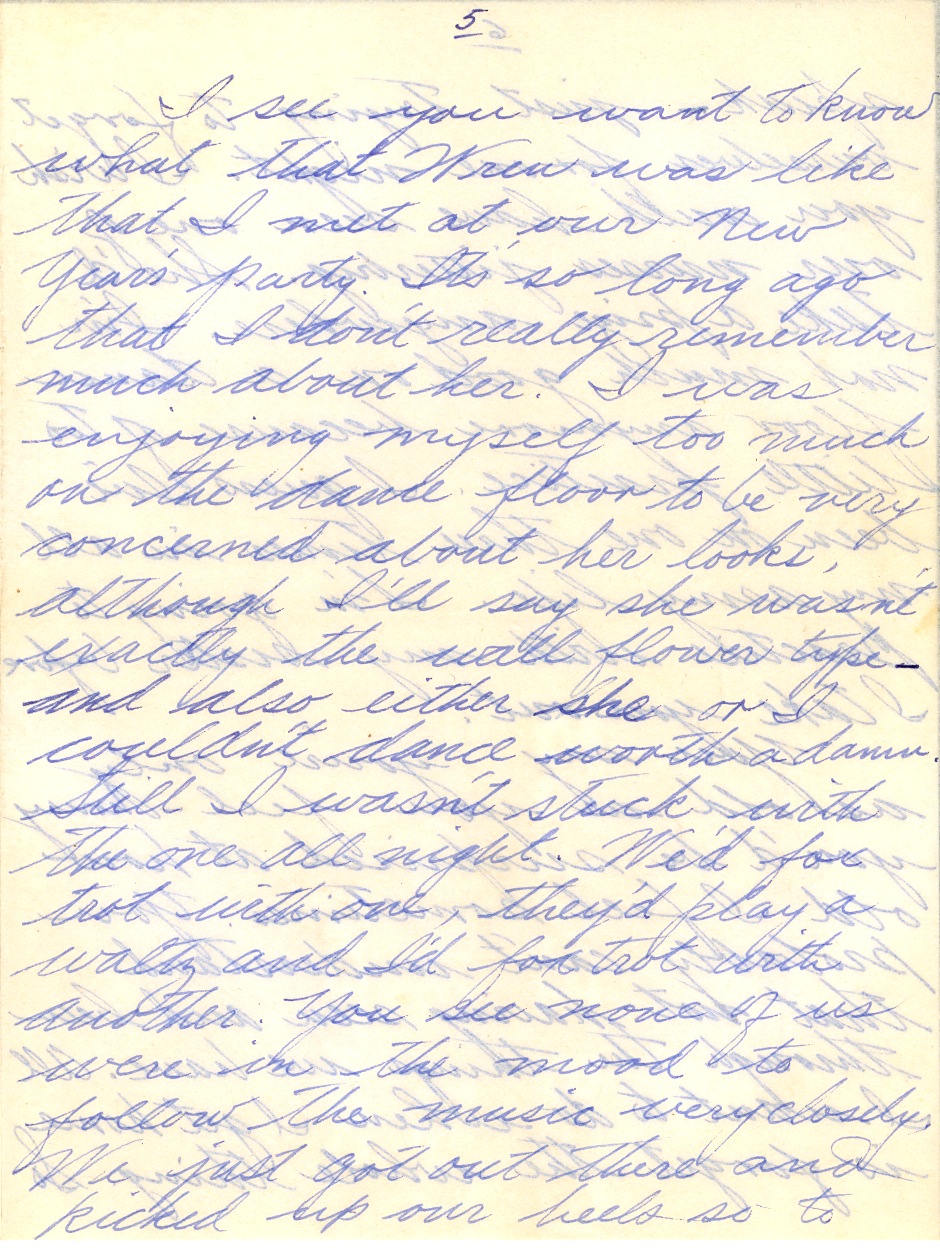 5
I see you want to know
what that Wren was like
that I met at our New
Year's party. It's so long ago
that I don't really remember
much about her. I was
enjoying myself too much
on the dance floor to be very
concerned about her looks,
although I'll say she wasn't
exactly the wall flower type—
and also either she or I
couldn't dance worth a damn.
Still I wasn't stuck with
the one all night. We'd fox
trot with one, they'd play a
waltz and I'd fox trot with
another. You see none of us
were in the mood to
follow the music very closely.
We just got out there and
kicked up our heels so to